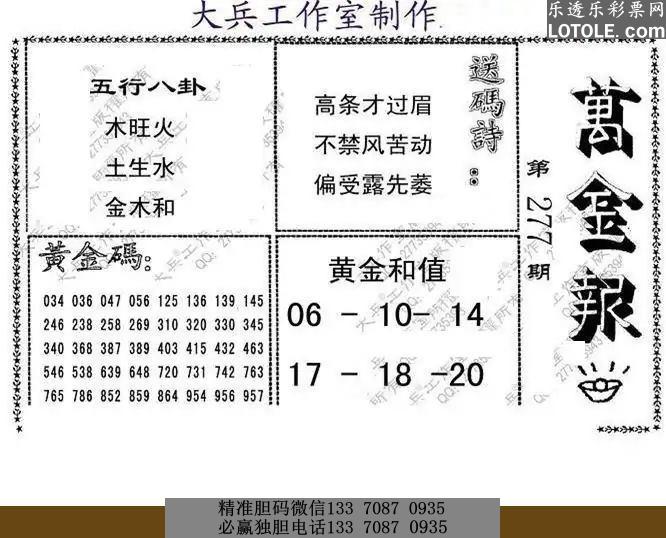 大兵工作室制作.
乐透乐彩票网
LOTOLE.COM
五行八卦
木旺火
土生水
金木和
送碼詩:
高条才过眉
不禁风苦动
偏受露先萎
萬金報
第277期
黃金碼:
034 036 047 056 125 136 139 145
246 238 258 269 310 320 330 345
340 368 387 389 403 415 432 463
546 538 639 648 720 731 742 763
765 786 852 859 864 954 956 957
黄金和值
06 - 10- 14
17 - 18 -20
精准胆码微信133 7087 0935
必赢独胆电话133 7087 0935